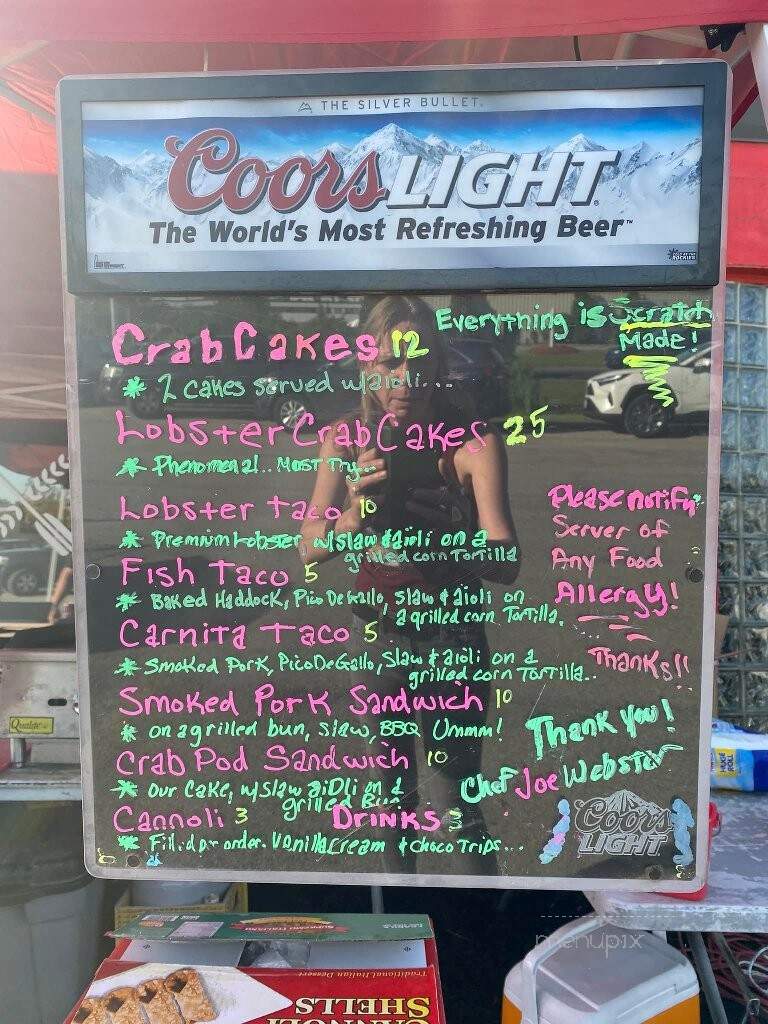 THE SILVER BULLET.
Coors LIGHT
The World's Most Refreshing Beer™
Everything is Scratch
Made!
Crab Cakes 12
* 2 cakes served w/aioli...
Lobster Crab Cakes 25
* Phenomenal.. Most Try...
Lobster Taco 10
* Premium Lobster w/slaw & aioli on a
grilled corn Tortilla
Fish Taco 5
* Baked Haddock, Pico De Gallo, slaw & aioli on
a grilled corn Tortilla.
Carnita Taco 5
* Smoked Pork, Pico De Gallo, Slaw & aioli on a
grilled corn Tortilla..
Smoked Pork Sandwich 10
* on a grilled bun, slaw, BBQ Ummm!
Crab Pod Sandwich 10
* our Cake, w/slaw aioli on a
grilled Bun.
Cannoli 3 Drinks 3
* Filled per order. Vanilla cream & choco Trips...
Please notify
Server of
Any Food
Allergy!
Thanks!!
Thank you!
Chef Joe Webster
Coors
LIGHT
Qualite
menupix
Traditional Italian Dessert
CANNOLI
SHELLS